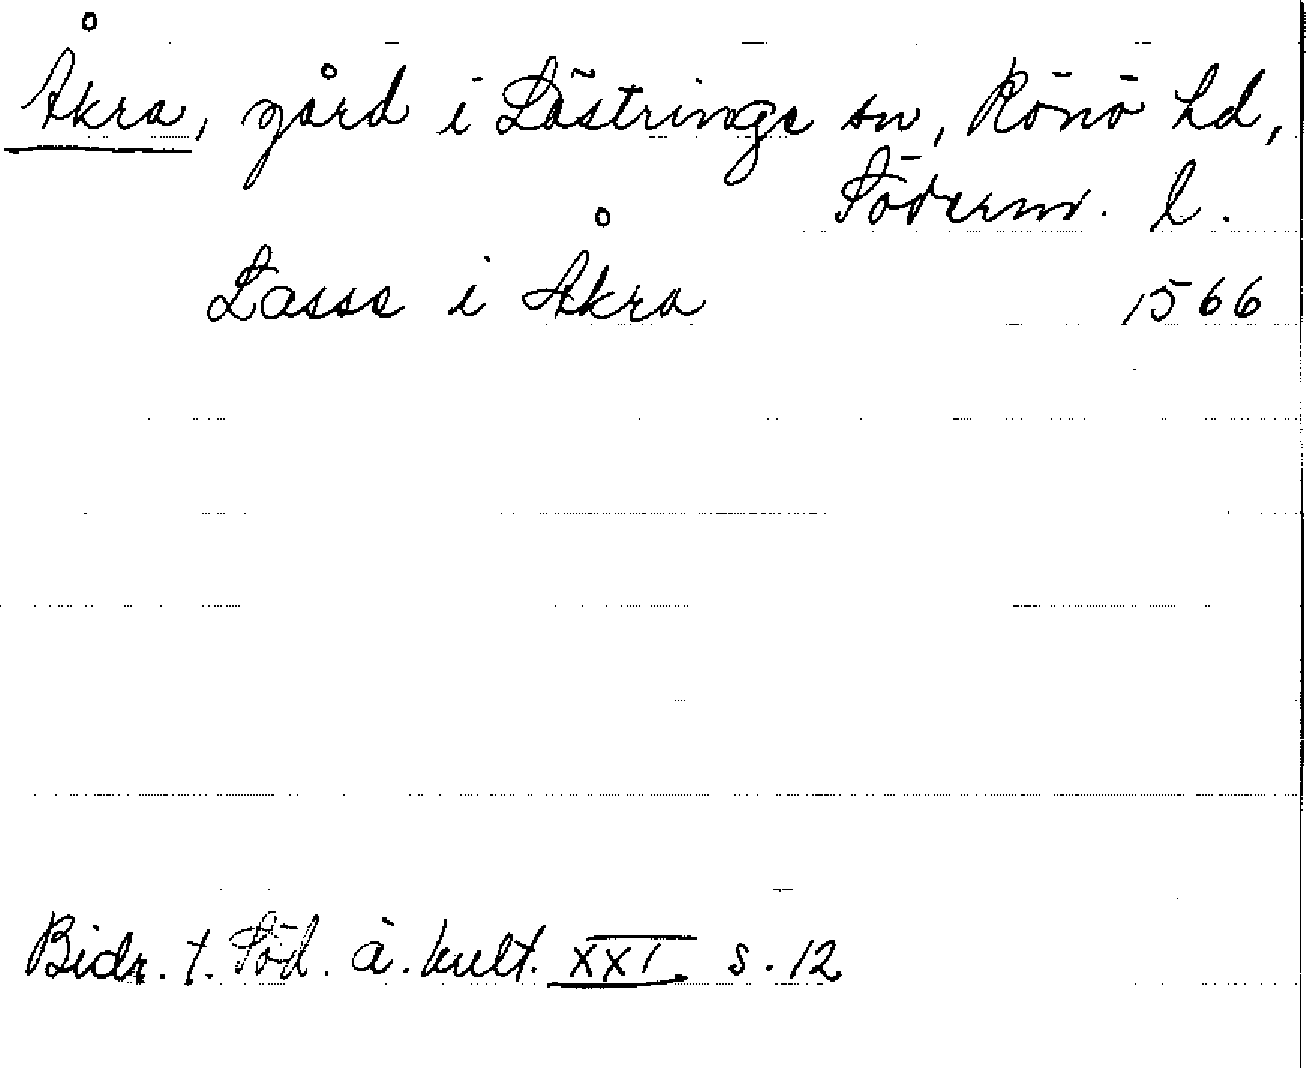 Åkra, gård i Lästringe sn, Rönö hd,
Söderm. l.
Lasse i Åkra 1566
Bidr. t. Söd. ä. kult. XXI s. 12